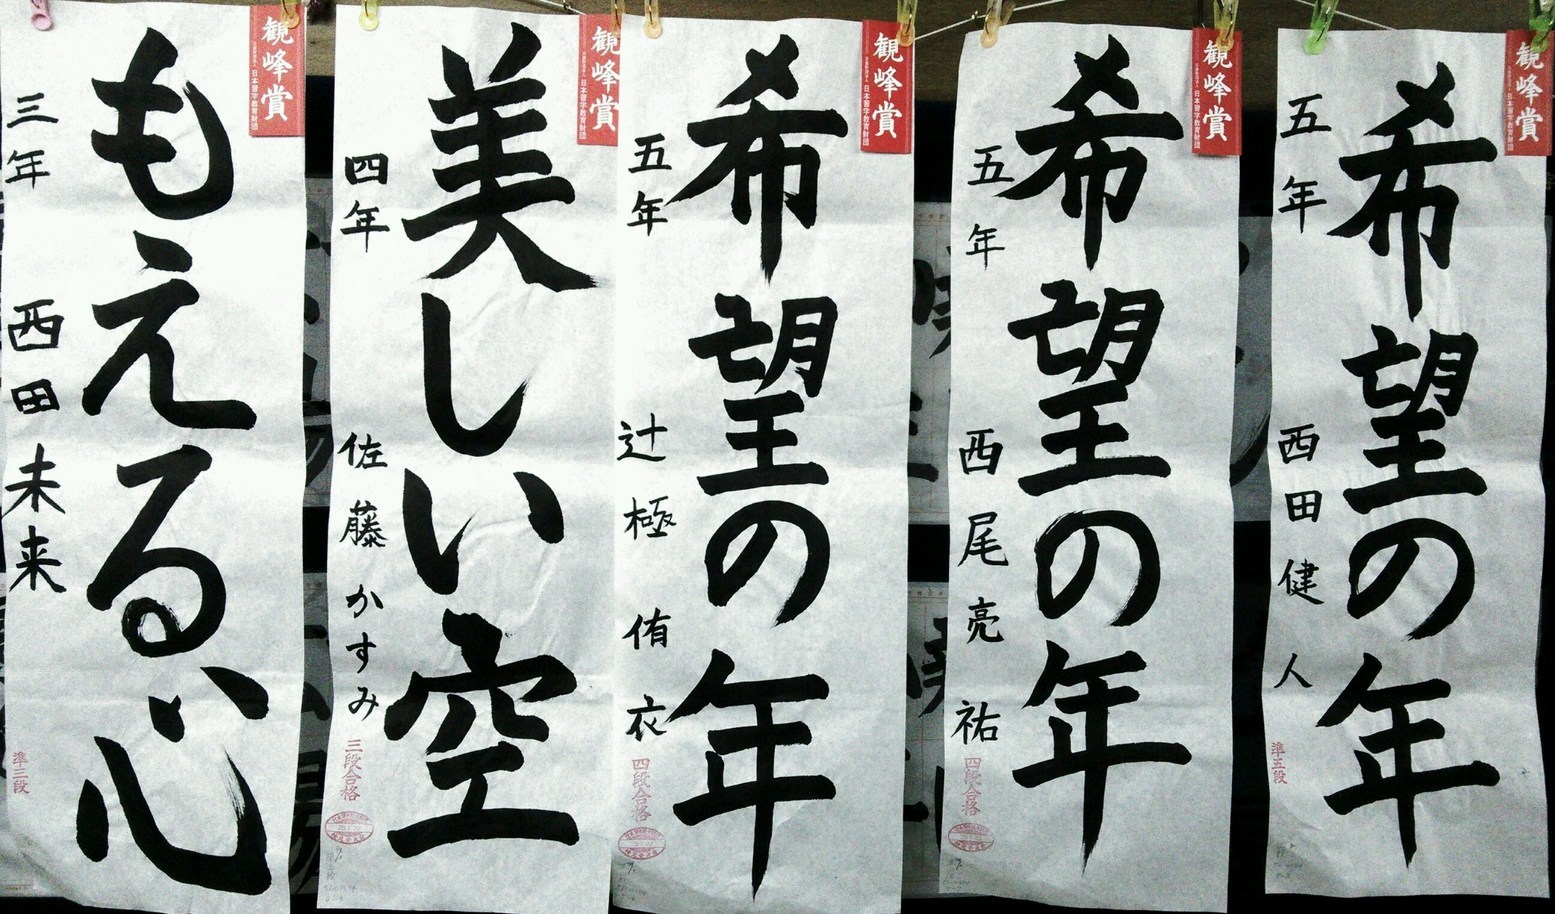 観峰賞
日本習字教育財団
希望の年
五年 西田健人
準五段
観峰賞
日本習字教育財団
希望の年
五年 西尾亮祐
四段合格
観峰賞
日本習字教育財団
希望の年
五年 辻極侑衣
四段合格
観峰賞
日本習字教育財団
美しい空
四年 佐藤かすみ
三段合格
観峰賞
日本習字教育財団
もえる心
三年 西田未来
準三段